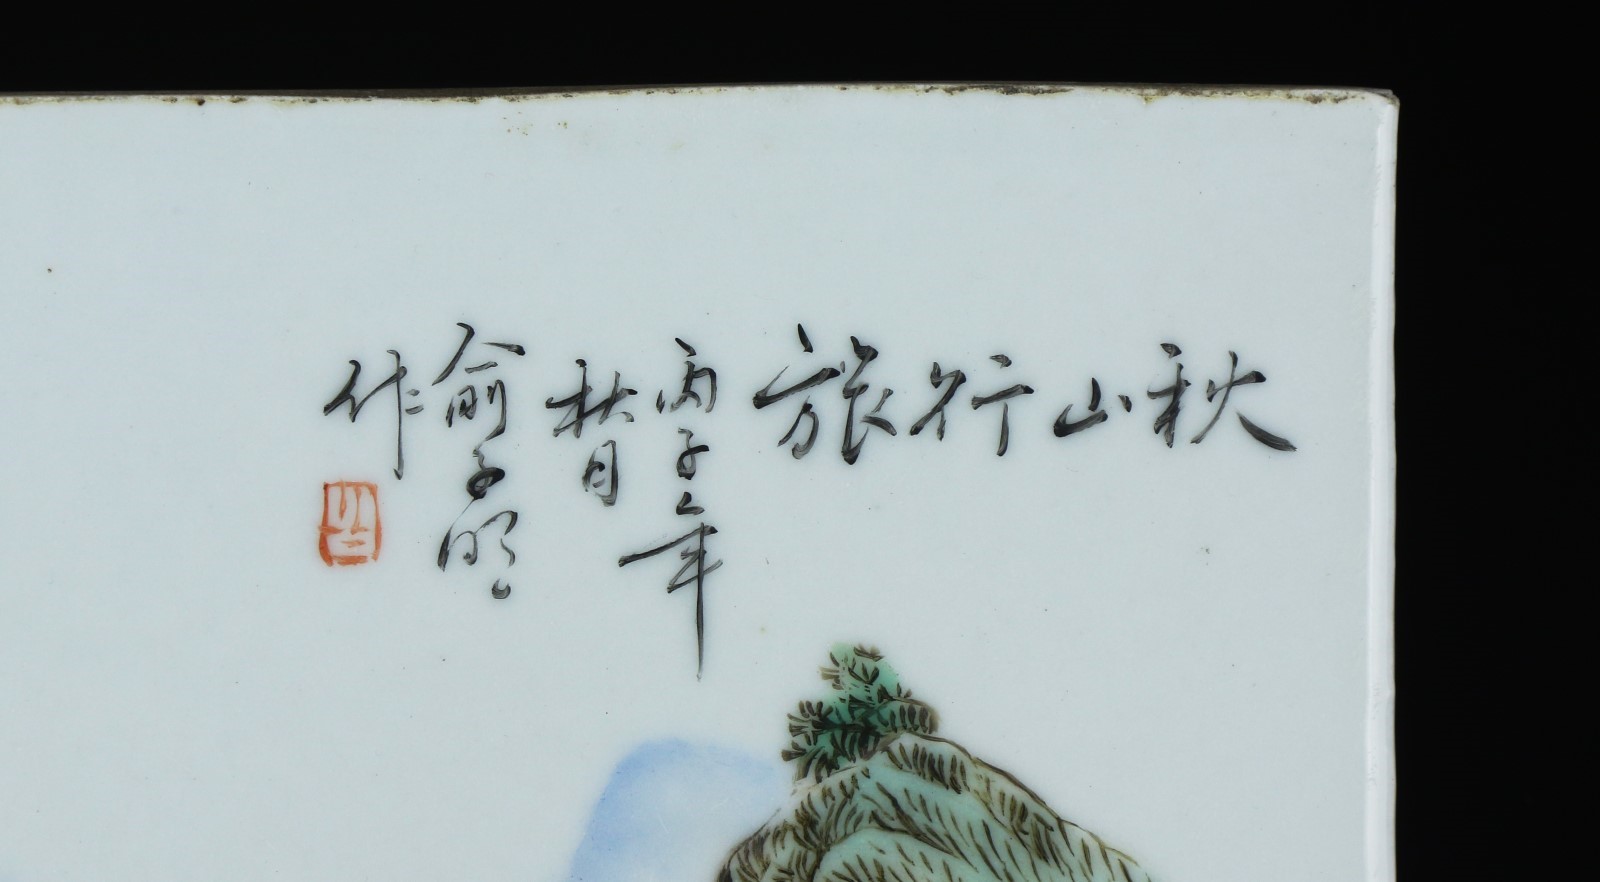 秋山行旅
丙子年
秋月
俞子明
作